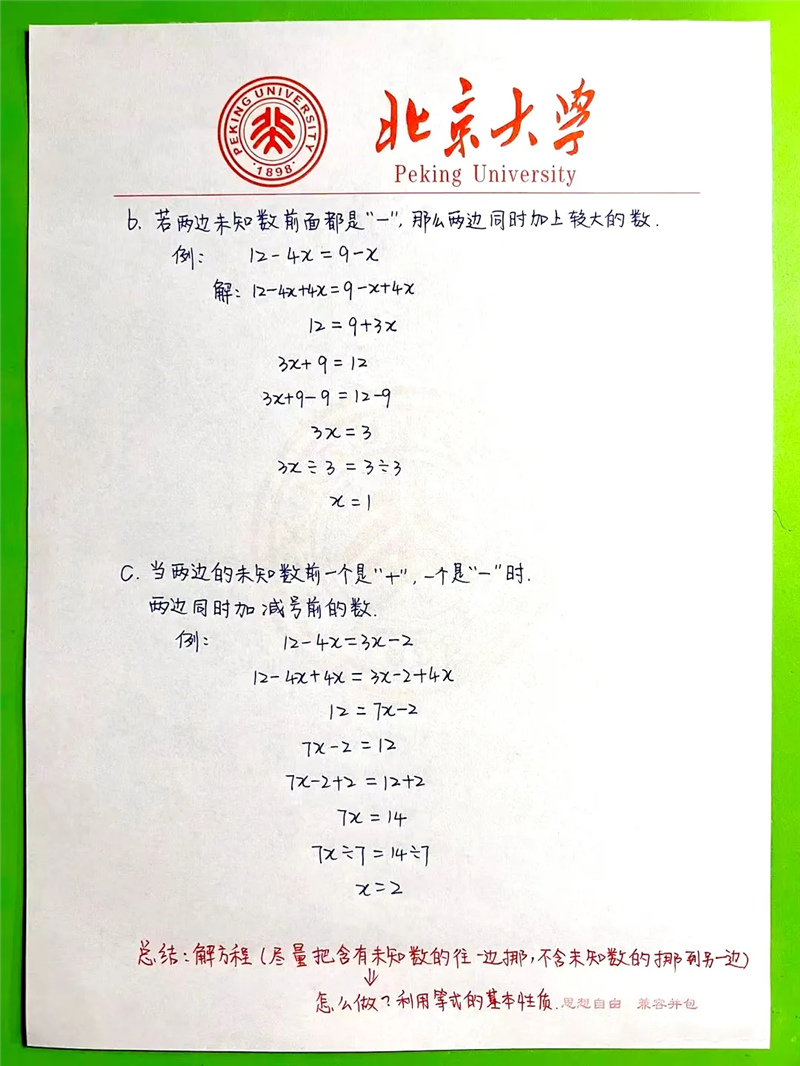 PEKING UNIVERSITY
·1898·
北京大学
Peking University
b. 若两边未知数前面都是"一",那么两边同时加上较大的数.
例: 12-4x=9-x
解: 12-4x+4x=9-x+4x
12=9+3x
3x+9=12
3x+9-9=12-9
3x=3
3x÷3=3÷3
x=1
c. 当两边的未知数前一个是"+",一个是"一"时.
两边同时加减号前的数.
例: 12-4x=3x-2
12-4x+4x=3x-2+4x
12=7x-2
7x-2=12
7x-2+2=12+2
7x=14
7x÷7=14÷7
x=2
总结:解方程(尽量把含有未知数的往一边挪,不含未知数的挪到另一边)
⇓
怎么做?利用等式的基本性质.
思想自由 兼容并包